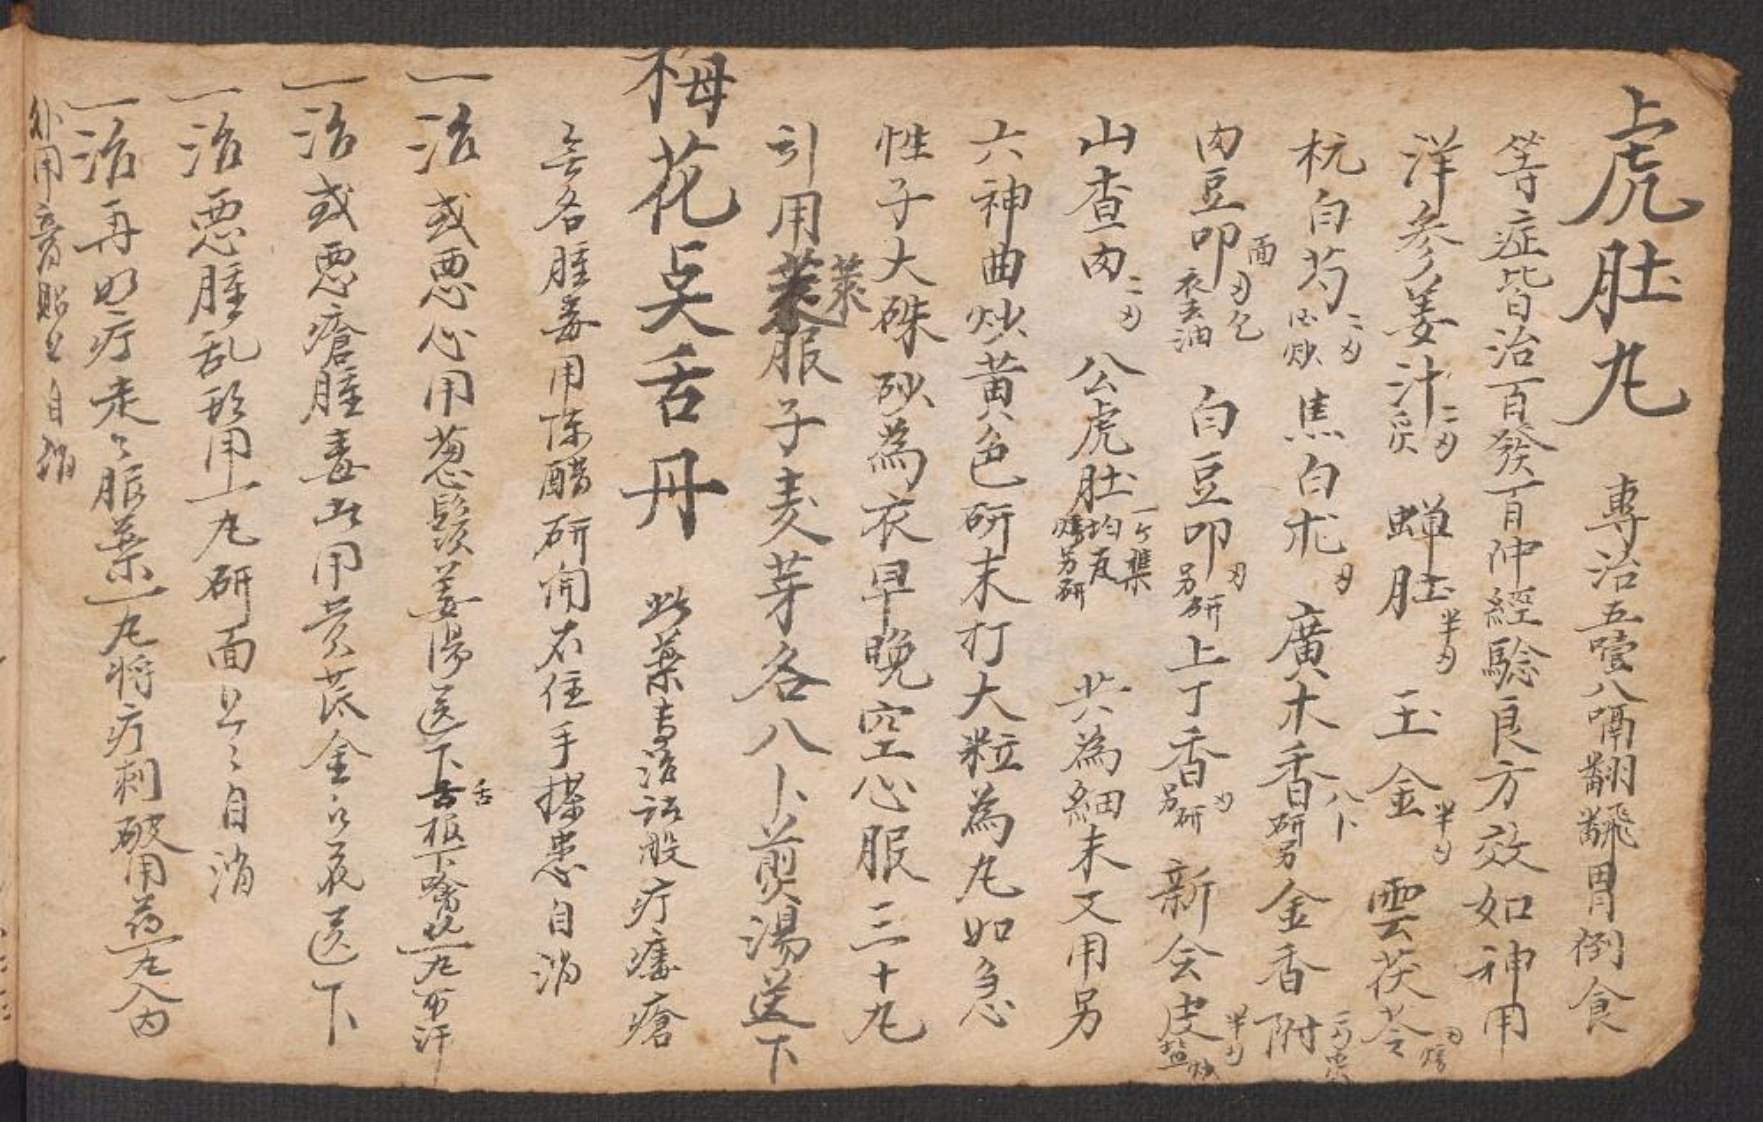 虎肚丸　專治五噎八嗝翻胃倒食
等症皆治百發百仲經驗良方效如神用
洋參姜汁二刄炙　蟬肚半刄　玉金半刄　雲茯苓刄
杭白芍二刄炒　焦白朮刄　廣木香八卜另研　金香附
肉豆叩刄面包去油　白豆叩刄另研　上丁香刄另研　新会皮半刄盐炒
山查肉二刄　公虎肚一个　共為細末又用另
六神曲炒黄色研末打大粒為丸如急
性子大硃砂為衣早晚空心服三十丸
引用萊服子麦芽各八卜煎湯送下
梅花点舌丹　此藥专治諸般疔瘡
無名腫毒用陈醋研開不住手搽患自消
一治或悪心用葱鬚姜湯送下舌根下噙化一丸出汗
一治或悪瘡腫毒此用黄芪金艮花送下
一治悪腫乱形用一丸研面上上自消
一治再如疔走上服藥一丸将疔刺破用药一丸入内
外用膏貼上自消